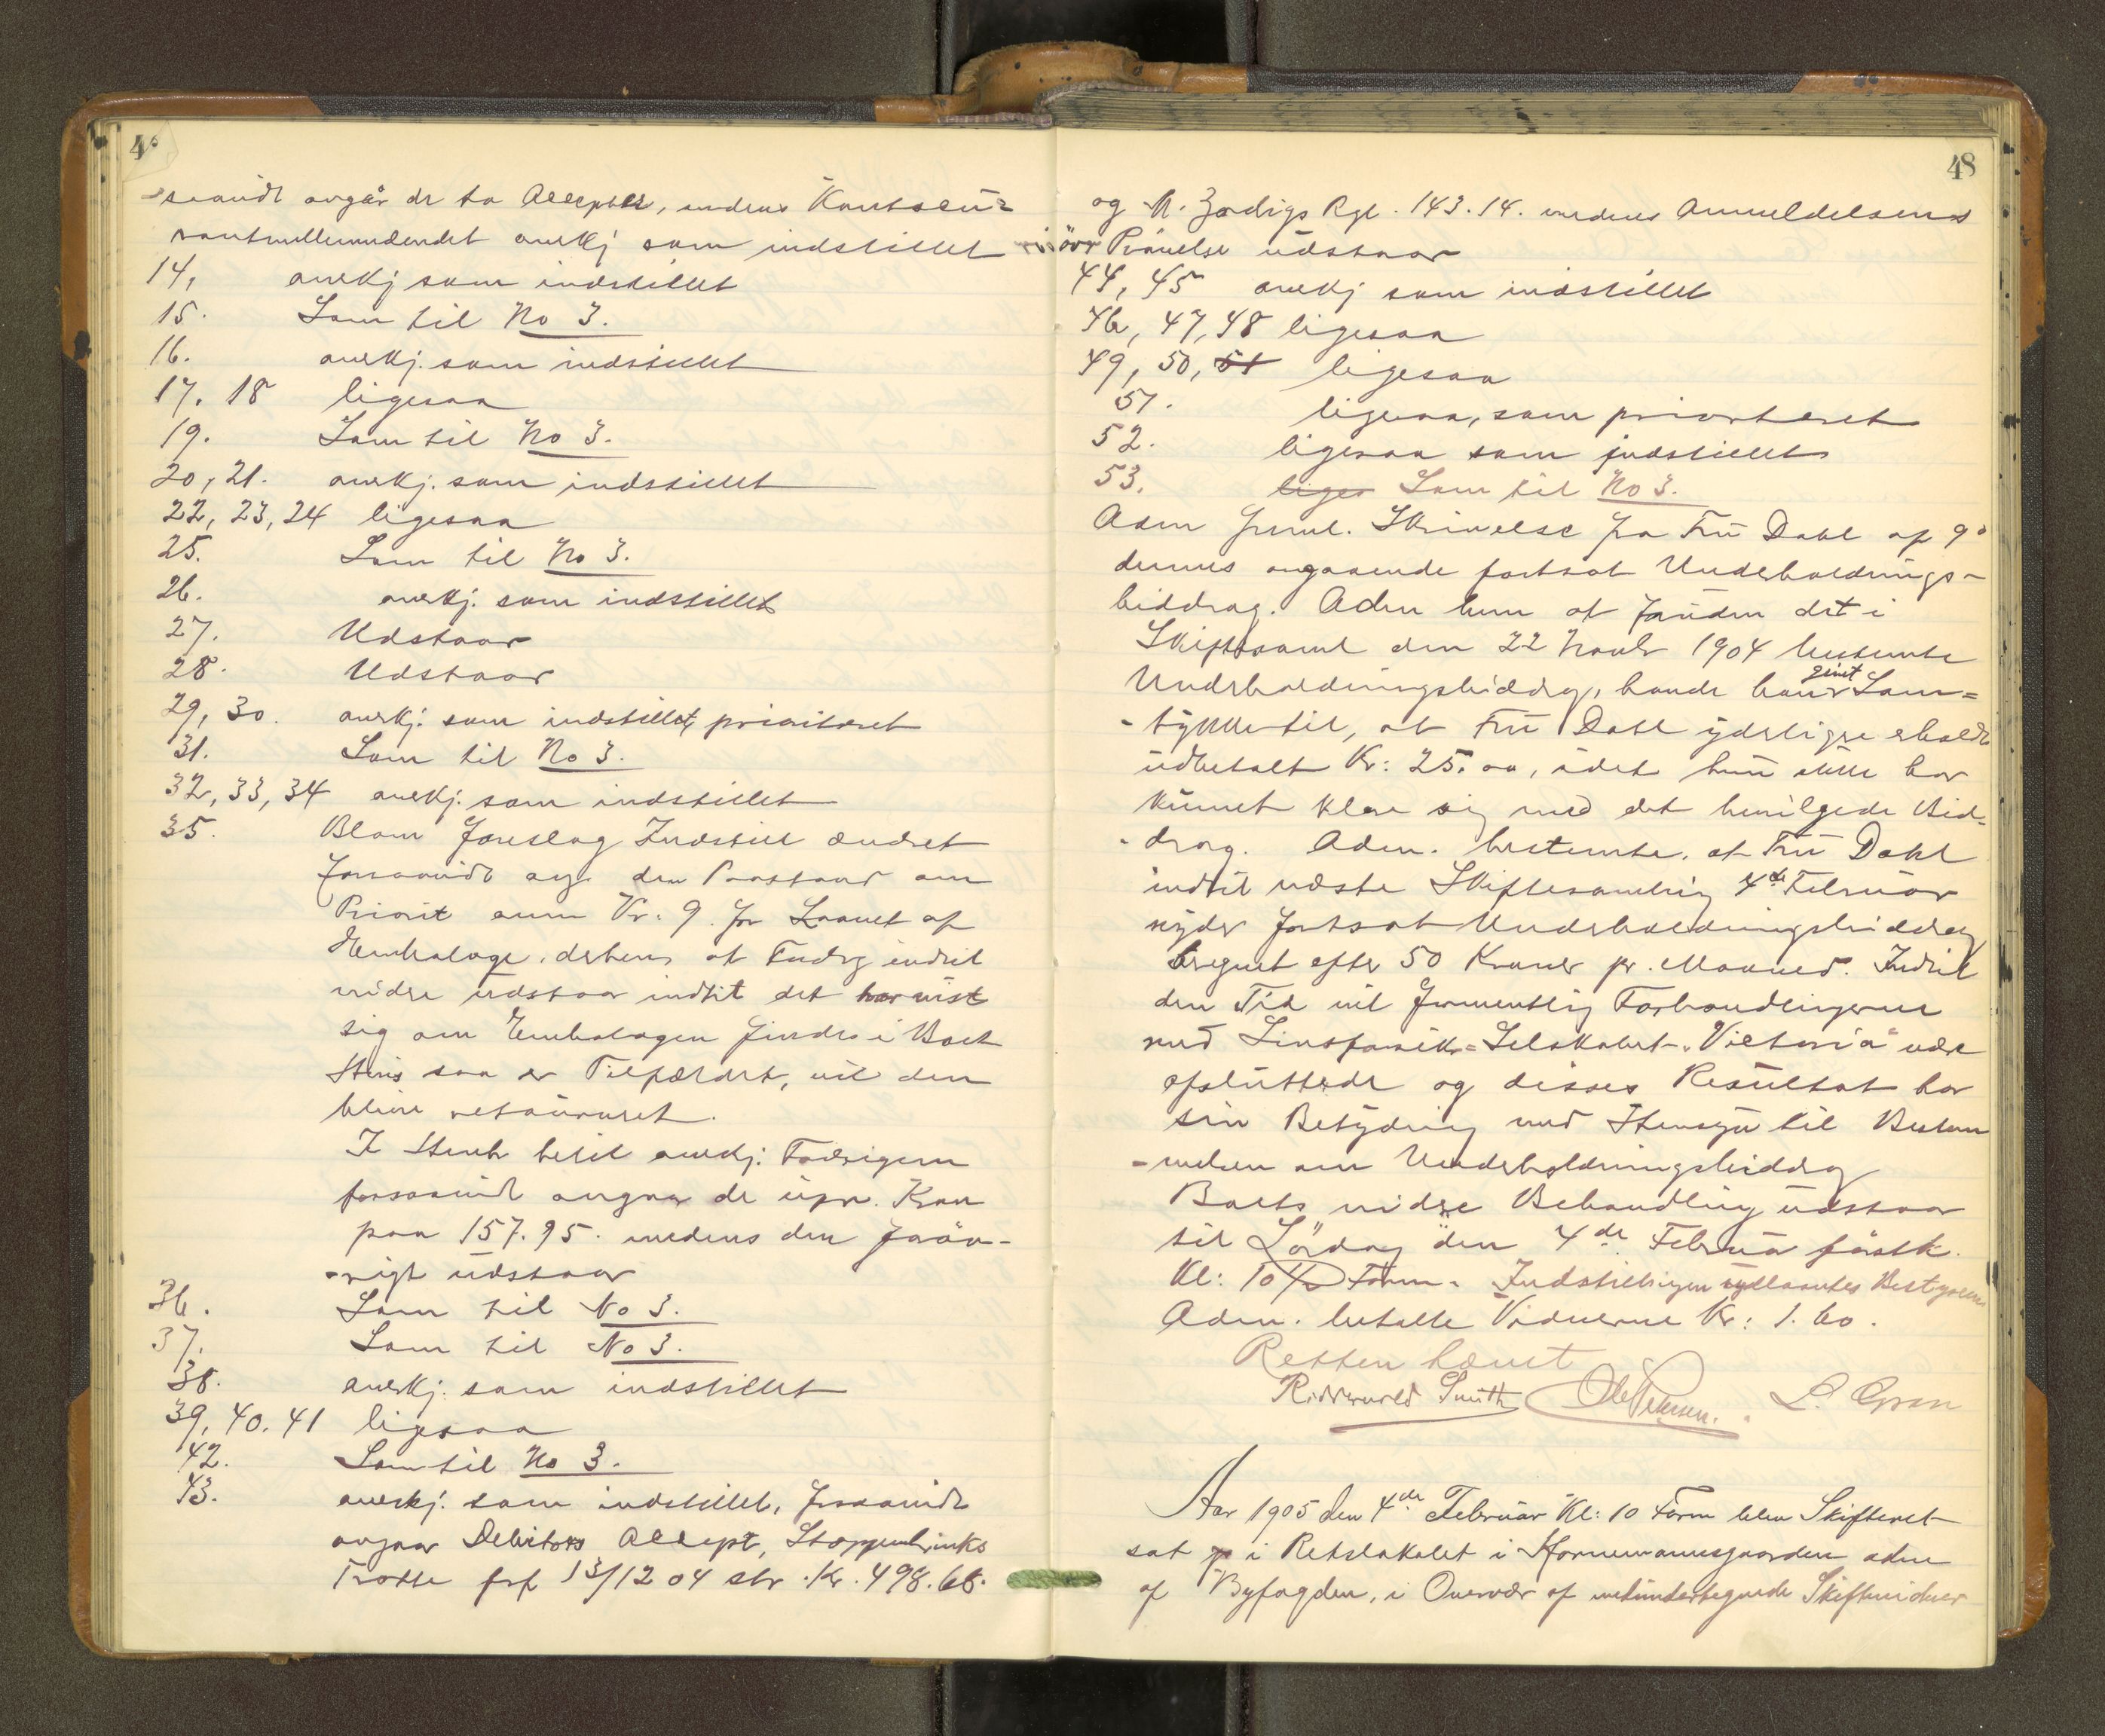 48
-saavidt angår de to Accepter, medens Kontocu-
rantmellemvdendet anerkj som indstillet
14, anerkj som indstillet
15. Som til No 3.
16. anerkj. som indstillet
17. 18 ligesaa
19. Som til No 3.
20, 21. anerkj. som indstillet
22, 23, 24 ligesaa
25. Som til No 3.
26. anerkj. som indstillet
27. Udstaar
28. Udstaar
29, 30. anerkj. som indstillet, prioriteret
31. Som til No 3.
32, 33, 34 anerkj. som indstillet
35. Blom foreslog Indstill ændret
forsaavidt ang. den Paastand om
Priorit anm Kr: 9. for Laanet af
Emballage, derhen, at Fordrg indtil
vidre udstaar indtil det har vist
sig om Emballagen findes i Boet
Hvis saa er Tilfældet, vil den
blive retourneret.
I Henh hertil anerkj. Fodrigen
forsaavidt angaar de upr. Kron
paa 157.95. medens den forøv-
-rigt udstaar
36. Som til No 3.
37. Som til No 3.
38. anerkj. som indstillet
39, 40. 41 ligesaa
42. Som til No 3.
43. anerkj. som indstillet, forsaavidt
angaar Debitors Accept, Stoppenbrinks
Tratte prf 13/12 04 str. Kr. 498.68.
og N. Zadigs Rgl. 143.14. medens Anmeldelsens
Prøvelse udstaar
44, 45 anerkj som indstillet
46, 47, 48 ligesaa
49, 50, 51 ligesaa
51. ligesaa, som prioriteret
52. ligesaa som indstillet
53. liges Som til No 3.
Adm freml. Skrivelse fra Fru Dahl af 9d
dennes angaaende fortsat Underholdnings-
biddrag. Adm hun at foruden det i
Skiftesaml den 22 Novbr 1904 bestemte
Underholdningsbiddrag, havde han givet Sam=
-tykke til, at Fru Dahl yderligere erholdt
udbetalt Kr: 25.00, idet hun ikke har
kunnet klare sig med det bevilgede Bid-
-drag. Adm. bestemte, at Fru Dahl
indtil næste Skiftesamling 4de Februar
nyder fortsat Underholdningsbiddrag
beregnet efter 50 Kroner pr. Maaned. Indtil
den Tid vil formentlig Forhandlingerne
med Livsforsikr=Selskabet "Victoria" være
afsluttede og disses Resultat har
sin Betydning med Hensyn til Bestem
-melsen om Underholdningsbiddrag
Boets vidre Behandling udstaar
til Lørdag den 4de Februa førstk.
Kl: 10 1/2 Form. Indstillingen vedlaantes Bestyreren
Adm. betalte Vidnerne Kr: 1.60.
Retten hævet
Ridderwold Smith Ole Pettersen. L. Gran
Aar 1905 den 4de Februar Kl: 10 Form blev Skifteret
sat i Retslokalet i Hornemannsgaarden adm
af Byfogden, i Overvær af medundertegnede Skiftevidner